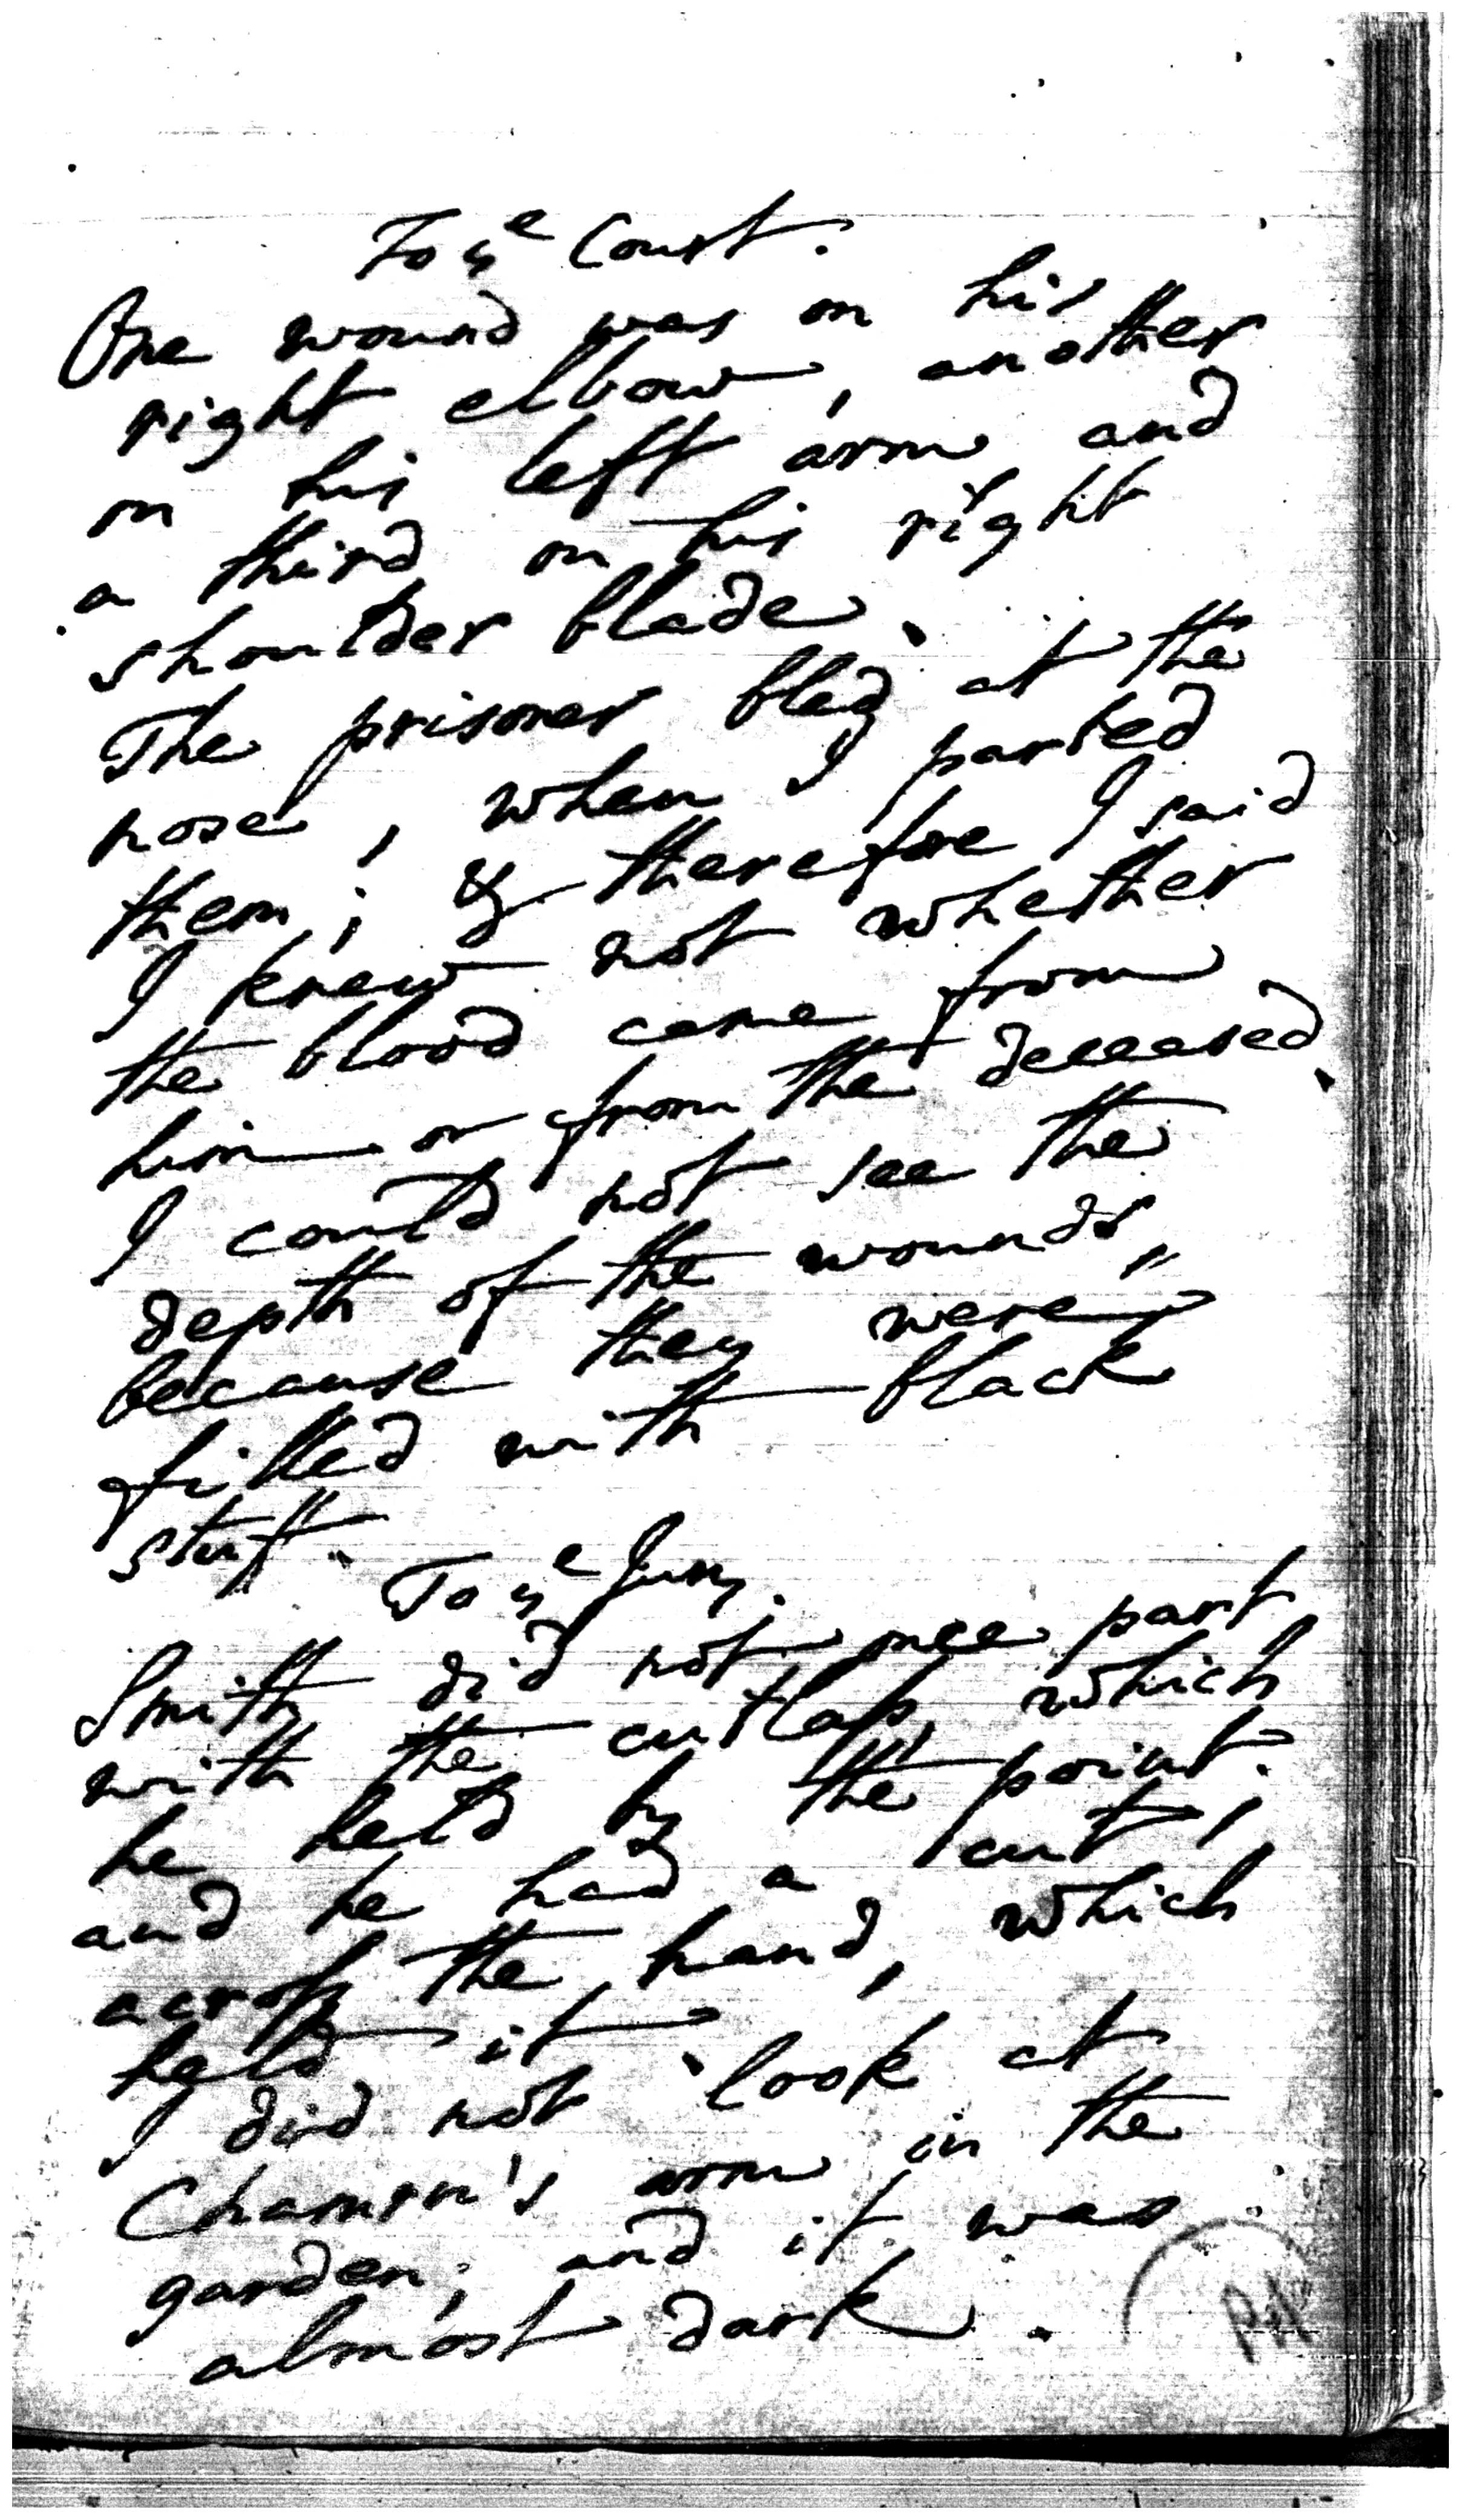 To yᵉ Court.
One wound was on his
right elbow, another
on his left arm and
a third on his right
shoulder blade.
The prisoner bled at the
nose, when I parted
them; & therefore I said
I knew not whether
the blood came from
him or from the deceased.
I could not see the
depth of the wounds,
because they were
filled with black
stuff.
To yᵉ Jury.
Smith did not once part
with the cutlaſs, which
he held by the point.
and he had a cut,
acroſs the hand, which
held it.
I did not look at
garden; and it was
arm in the
almost dark.